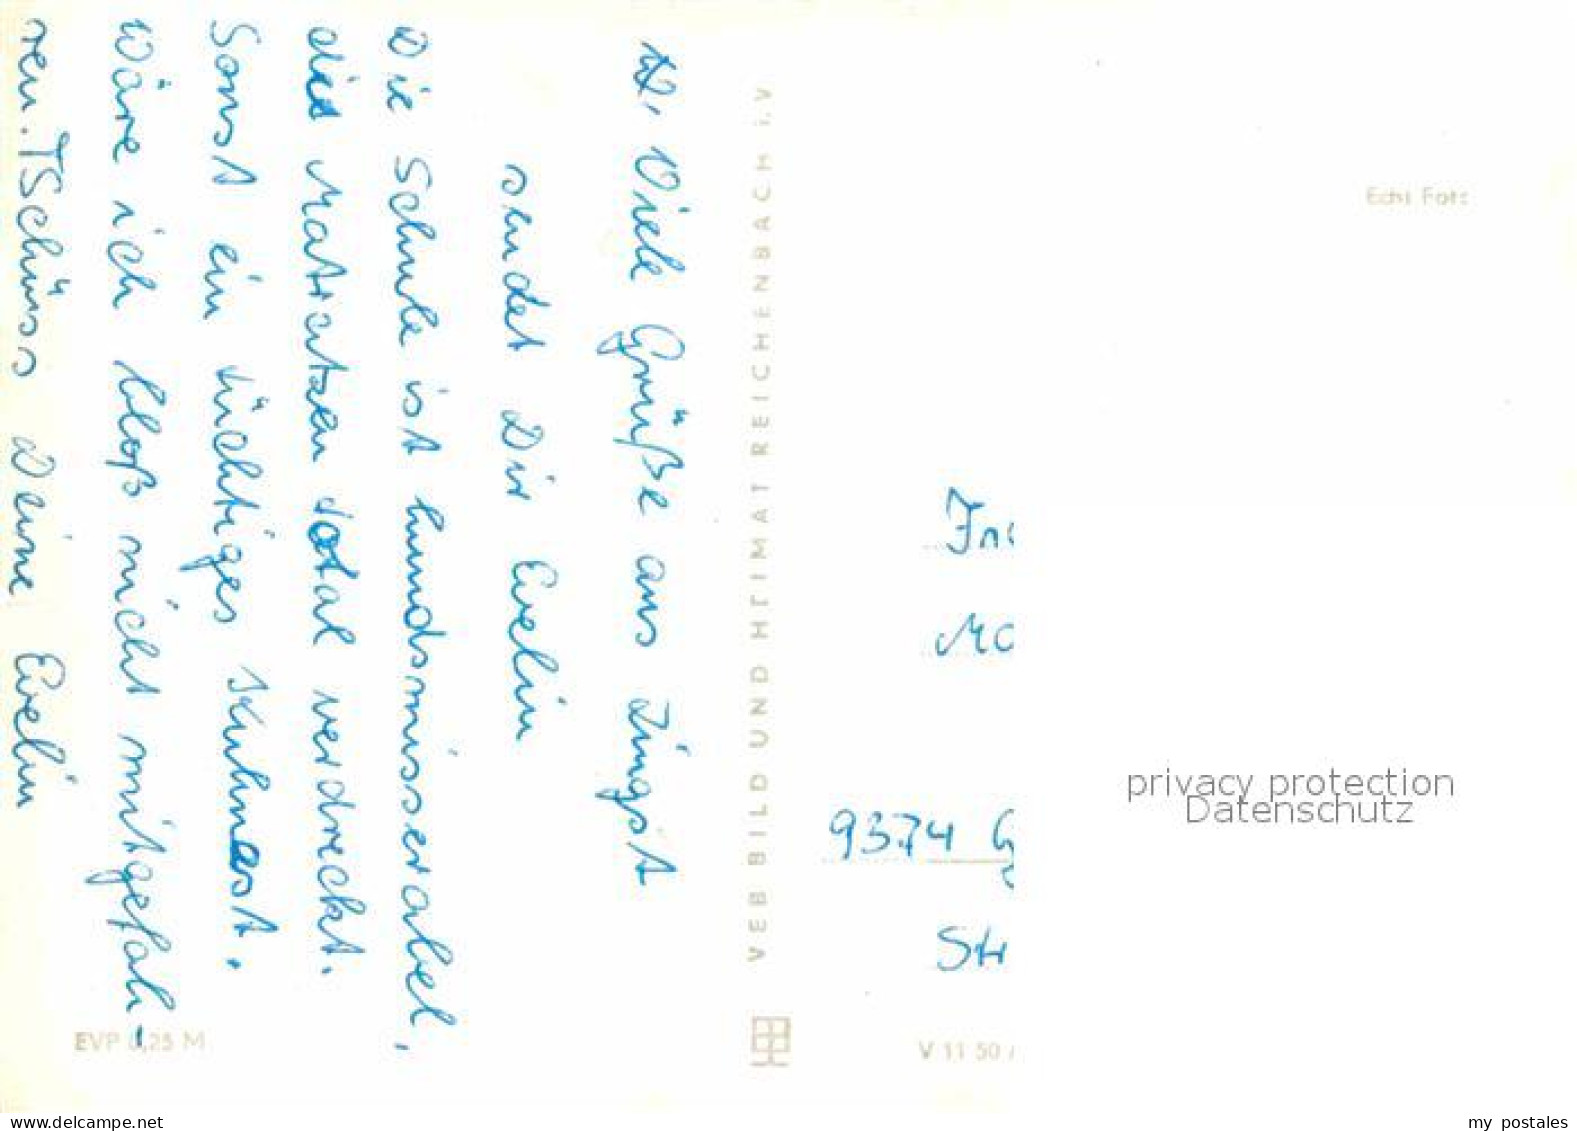 H, Viele Grüße aus Zingst
sendet Dir Evelin
Die Schule ist hundsmisserabel,
die Matratzen total verdreckt.
Sonst ein tüchtiges Kuhnest.
Wäre ich bloß nicht mitgefah-
ren. TSchüss Deine Evelin
EVP 0,25 M
VEB BILD UND HEIMAT REICHENBACH i.V
Echt Foto
9374 G
Str
V 11 50
privacy protection
Datenschutz
my postales